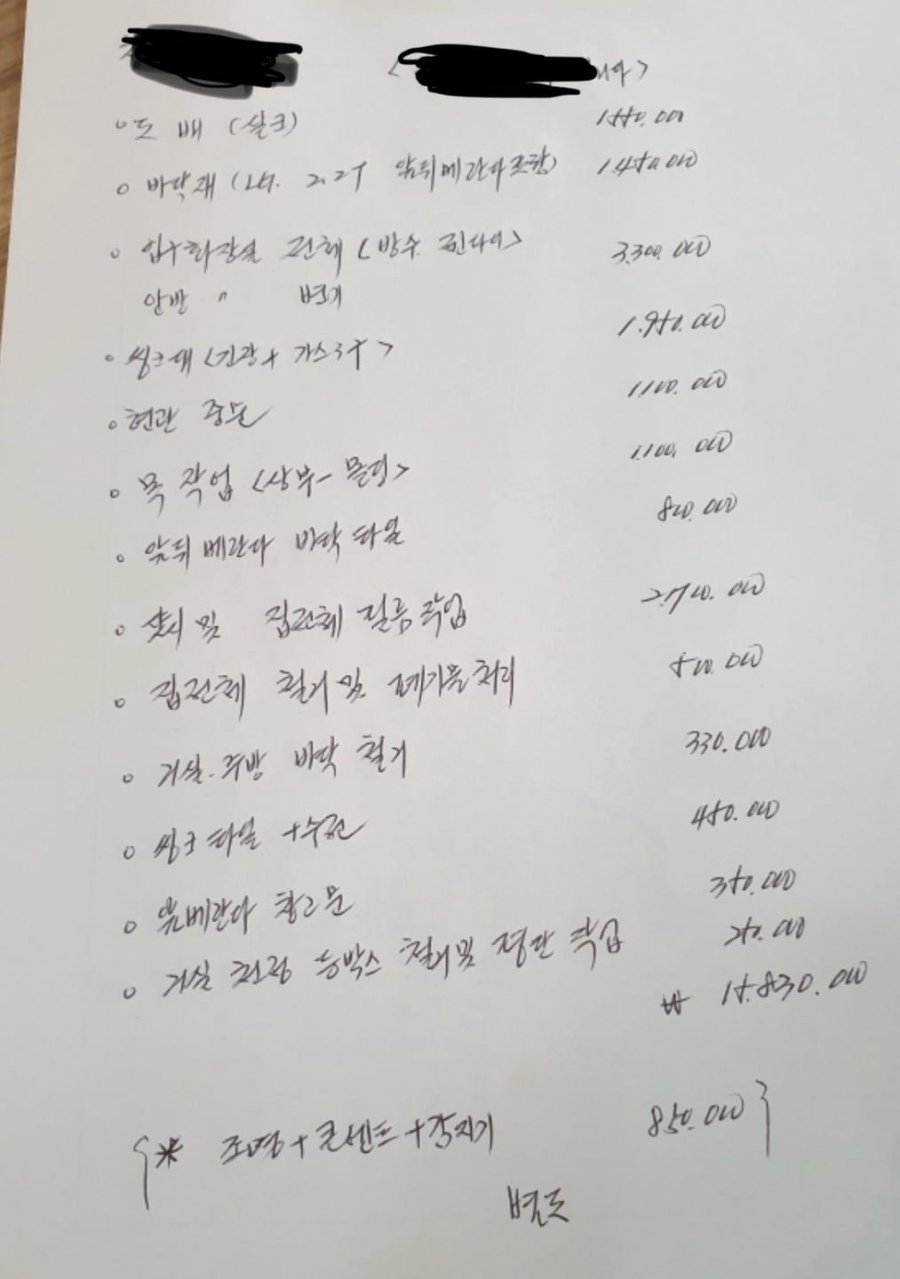 ㅇ도배 (실크) 1550.000
ㅇ 바닥재 (LG. 2.2T 앞뒤베란다포함) 1.450.000
ㅇ 입구화장실 전체 <방수. 젠다이> 3.300.000
안방 〃 변기
ㅇ 씽크대 <긴장 + 가스3구> 1.950.000
ㅇ 현관 중문 1.100.000
ㅇ 목 작업 <상부-몰딩> 1.100.000
ㅇ 앞뒤 베란다 바닥 타일 800.000
ㅇ 샷시 및 집전체 필름작업 2.700.000
ㅇ 집전체 철거 및 폐기물처리 500.000
ㅇ 거실.주방 바닥 철거 330.000
ㅇ 씽크 타일 +수전 450.000
ㅇ 앞베란다 창고문 350.000
ㅇ 거실 천정 등박스 철거 및 평탄 작업 250.000
₩ 15.830.000
{ * 조명 + 콘센트 + 감지기 850.000 }
별도